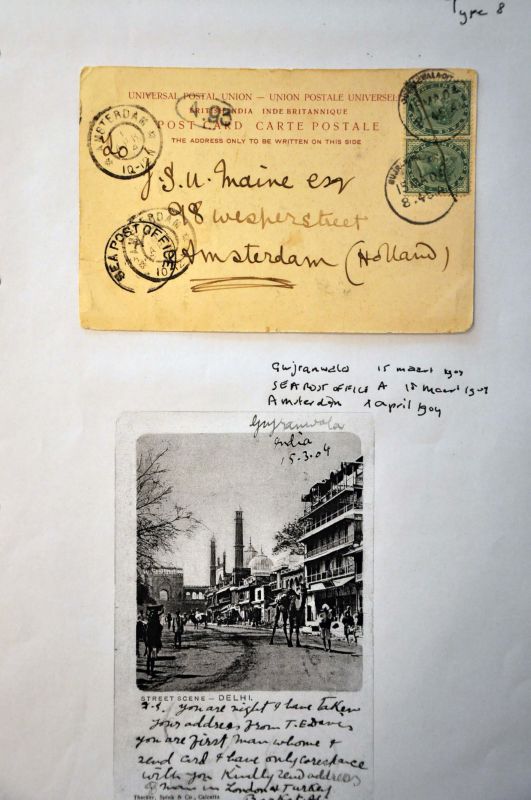 Type 8
UNIVERSAL POSTAL UNION — UNION POSTALE UNIVERSELLE
BRITISH INDIA INDE BRITANNIQUE
POST CARD CARTE POSTALE
THE ADDRESS ONLY TO BE WRITTEN ON THIS SIDE
AMSTERDAM
93
15 MR 04
8.45
J.S.U. Maine esq
98 wesperstreet
Amsterdam (Holland)
SEA POST OFFICE
Gujranwala 15 maart 1904
SEA POST OFFICE A 18 maart 1904
Amsterdam 1 april 1904
Gujranwala
India
15.3.04
STREET SCENE — DELHI.
you are right I have taken
your address from T.E Davis
you are first man whome I
send card & have only
with you Kindly send address
of man in London & Turkey
Thacker, Spink & Co., Calcutta